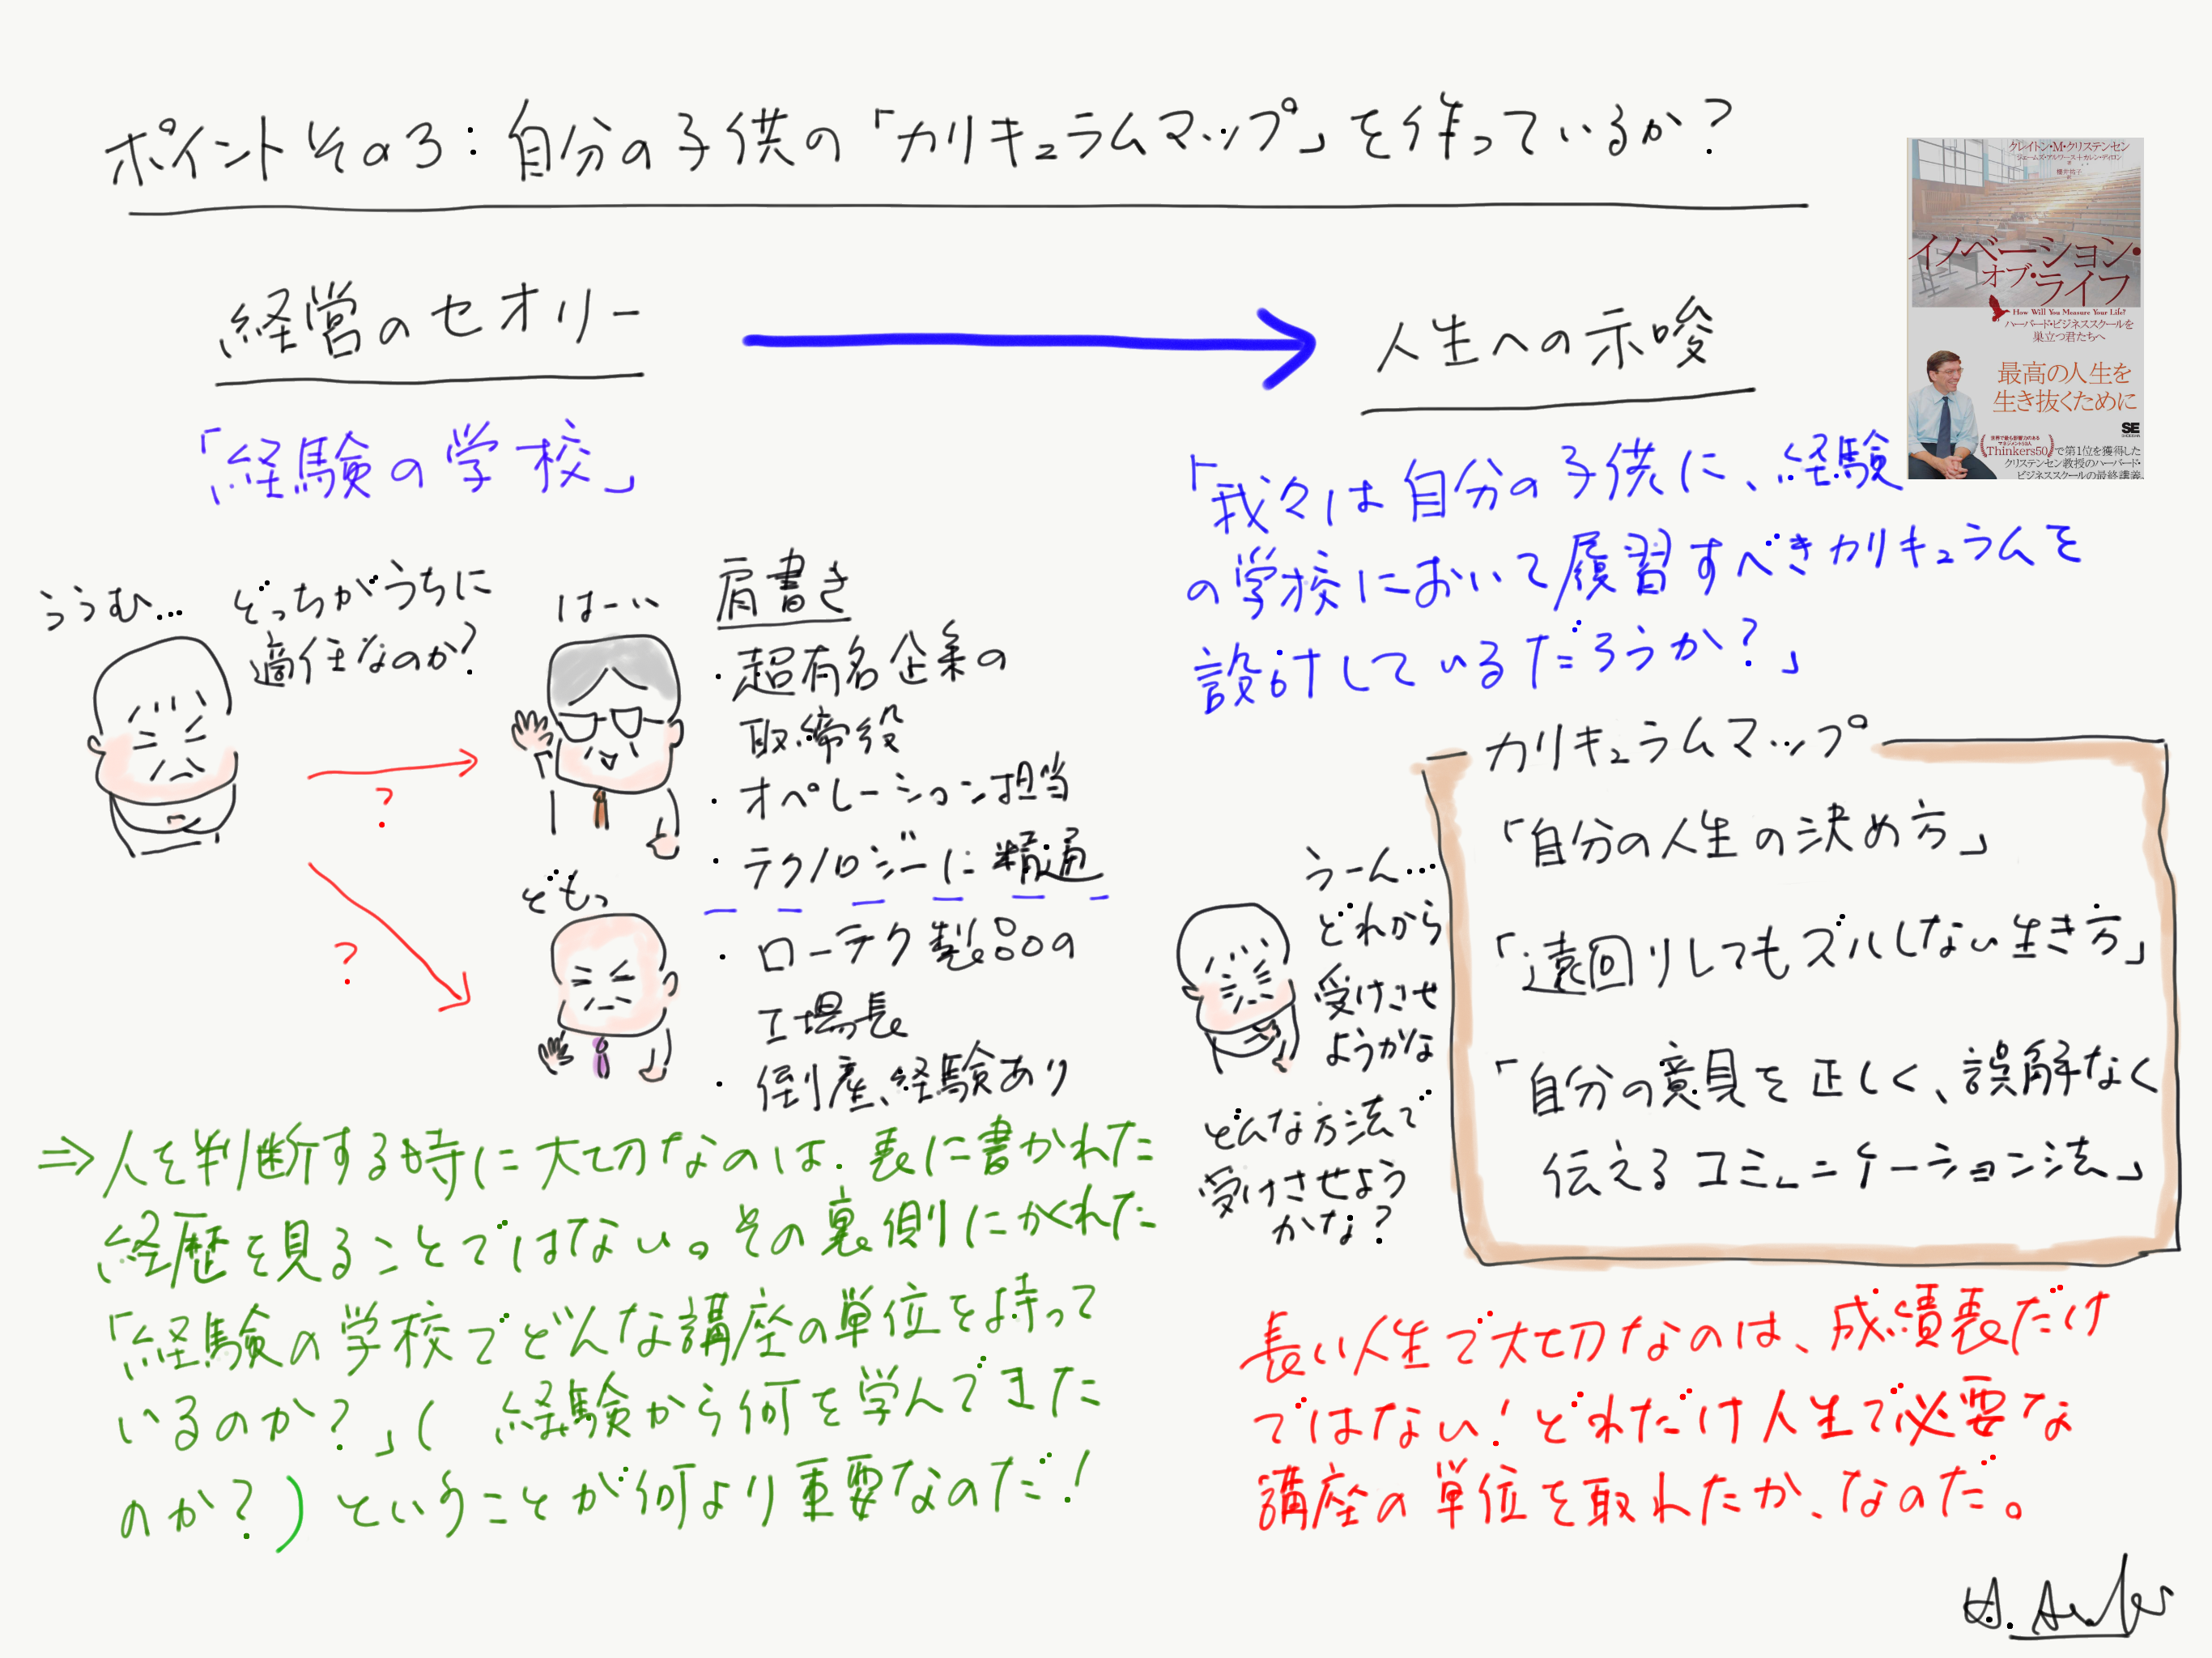 ポイントその3：自分の子供の「カリキュラムマップ」を作っているか？
クレイトン・M・クリステンセン
ジェームズ・アルワース＋カレン・ディロン
櫻井祐子
イノベーション・
オブ・ライフ
How Will You Measure Your Life?
ハーバード・ビジネススクールを
巣立つ君たちへ
最高の人生を
生き抜くために
SE
Thinkers50で第1位を獲得した
クリステンセン教授のハーバード・
ビジネススクールの最終講義
経営のセオリー
「経験の学校」
ううむ… どっちがうちに
適任なのか？
はーい
肩書き
・超有名企業の
取締役
・オペレーション担当
・テクノロジーに精通
?
?
どもっ
・ローテク製品の
工場長
・倒産、経験あり
⇒人を判断する時に大切なのは、表に書かれた
経歴を見ることではない。その裏側にかくれた
「経験の学校でどんな講座の単位を持って
いるのか？」（経験から何を学んできた
のか？）ということが何より重要なのだ！
人生への示唆
「我々は自分の子供に、経験
の学校において履習すべきカリキュラムを
設計しているだろうか？」
カリキュラムマップ
「自分の人生の決め方」
「遠回りしてもズルしない生き方」
「自分の意見を正しく、誤解なく
伝えるコミュニケーション法」
うーん…
どれから
受けさせ
ようかな
どんな方法で
受けさせよう
かな？
長い人生で大切なのは、成績表だけ
ではない！どれだけ人生で必要な
講座の単位を取れたか、なのだ。